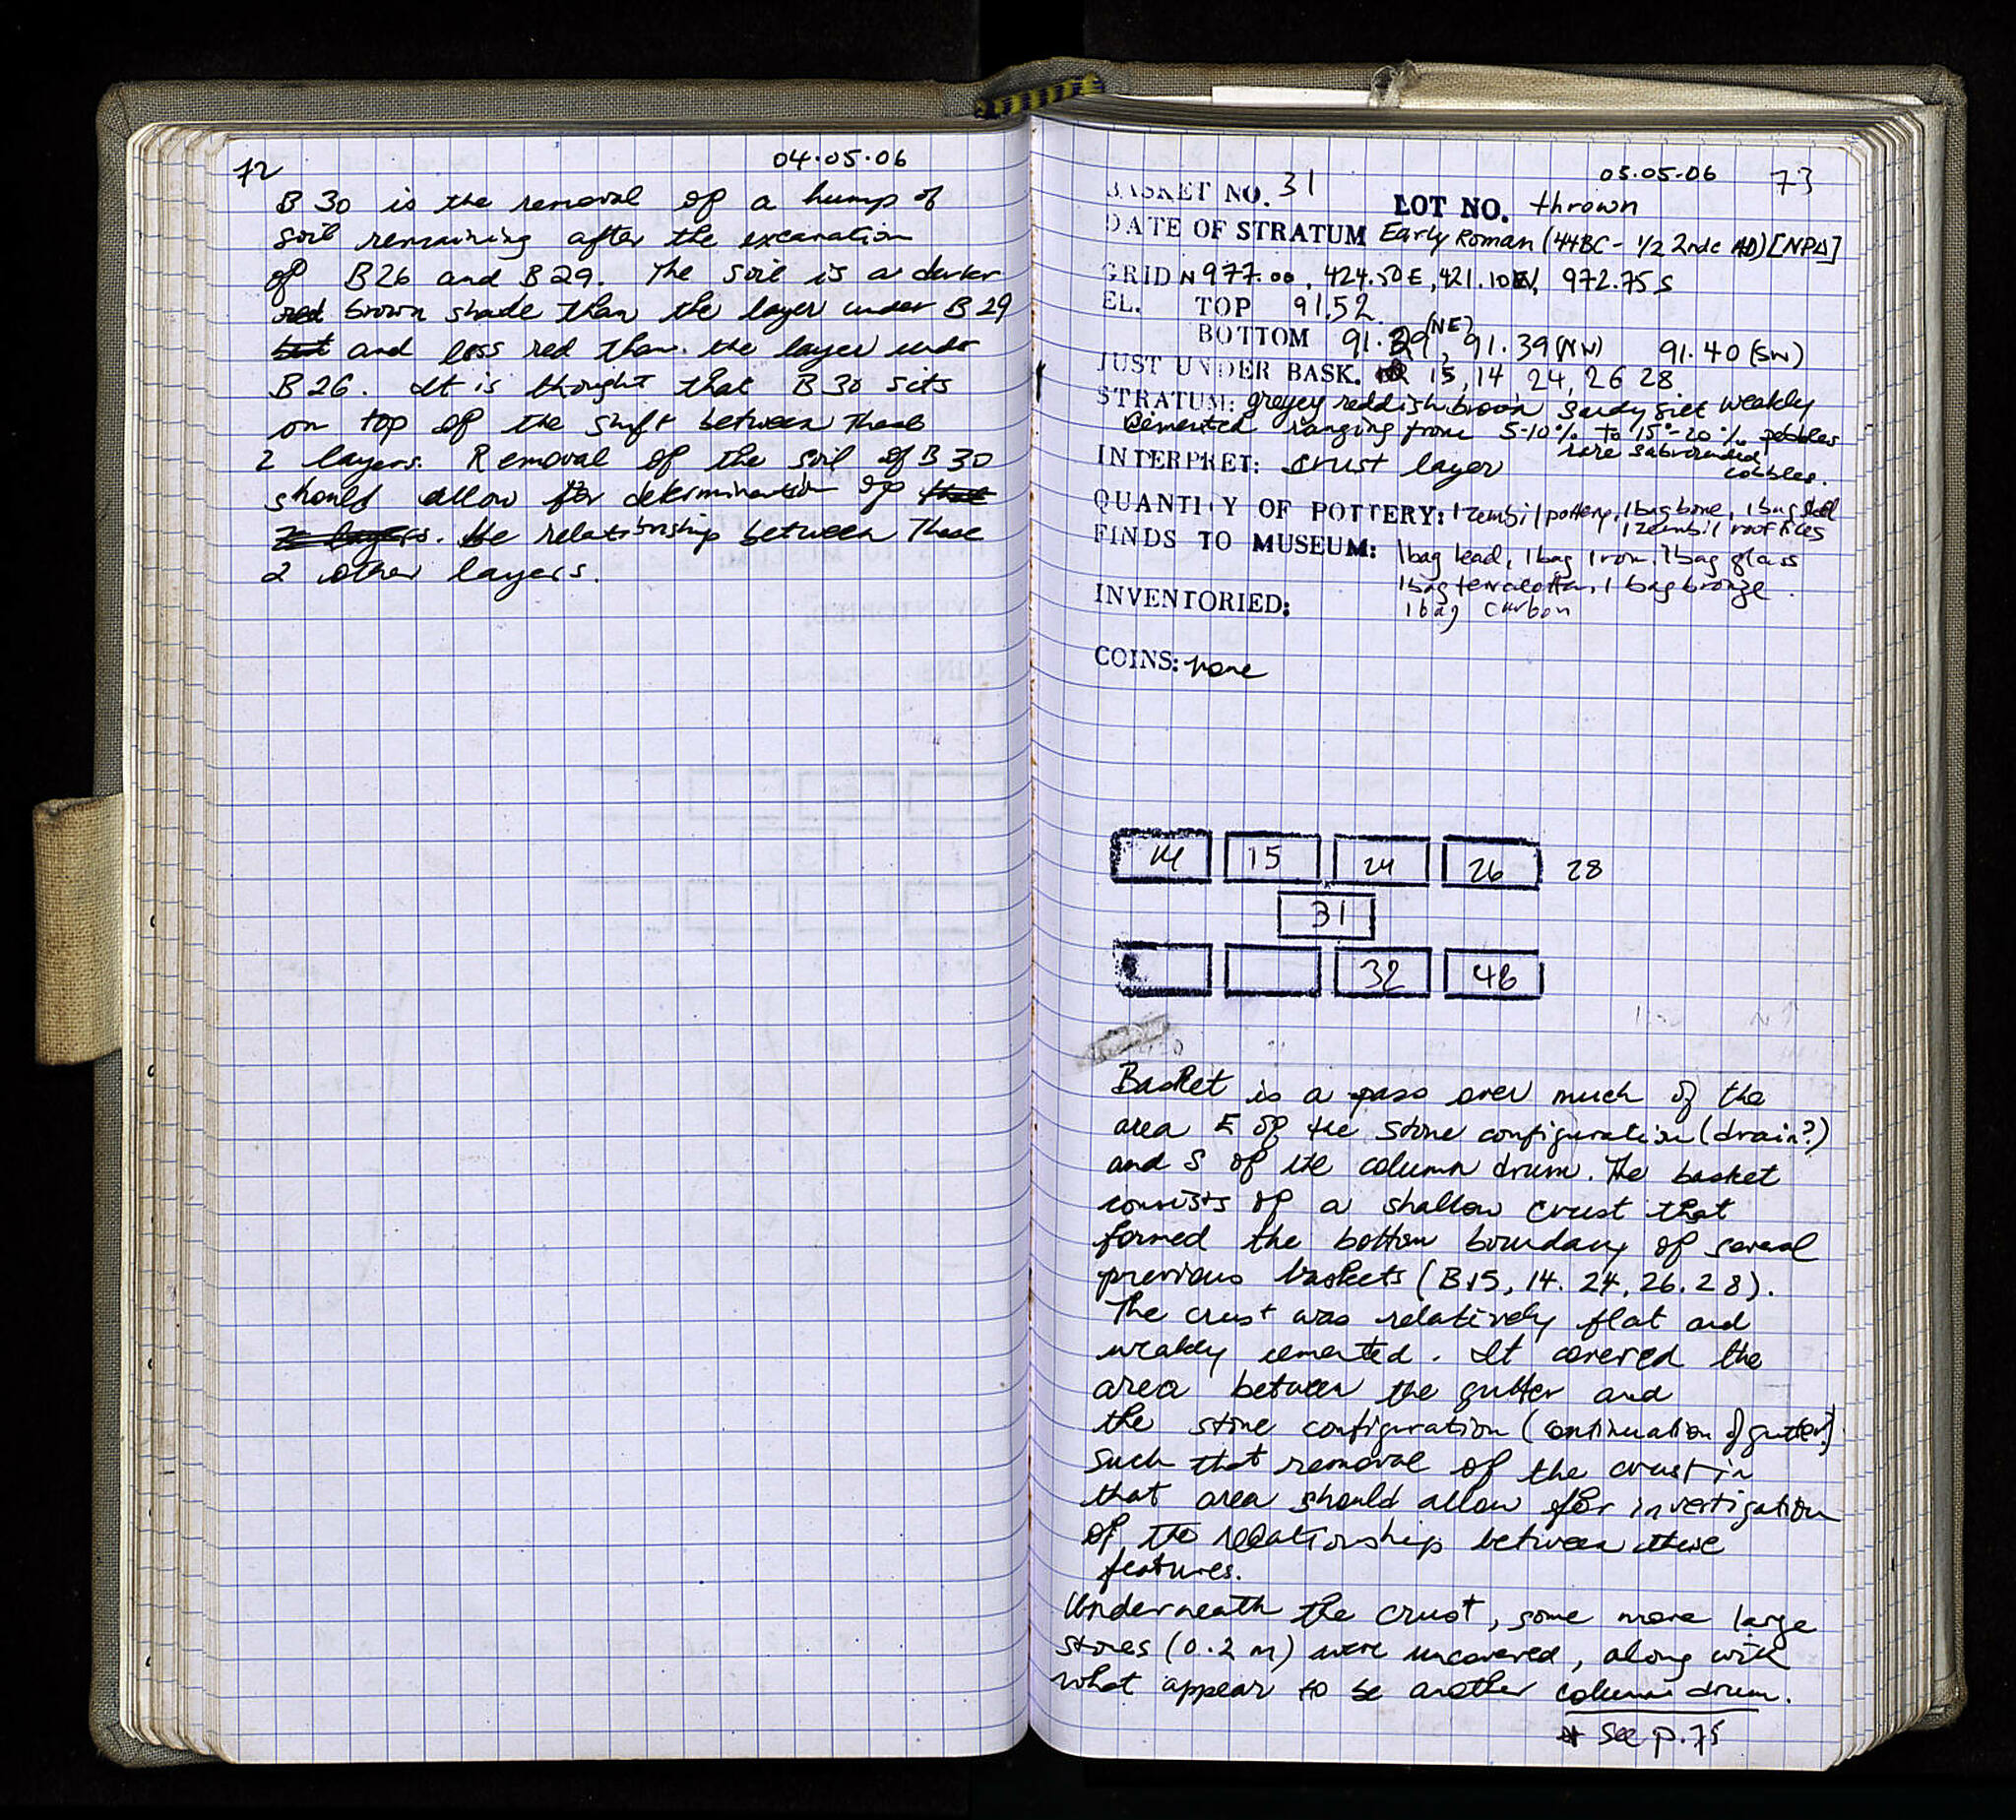 72
04.05.06
B 30 is the removal of a hump of
soil remaining after the excavation
of B26 and B29. The soil is a darker
red brown shade than the layer under B29
but and less red than the layer under
B26. It is thought that B30 sits
on top of the shift between these
2 layers. Removal of the soil of B30
should allow for determination of that
2 layers. the relationship between these
2 other layers.
05.05.06 73
BASKET NO. 31 LOT NO. thrown
DATE OF STRATUM Early Roman (44BC - 1/2 2ndc AD) [NPD]
GRID N 977.00, 424.50E, 421.10W, 972.75S
EL. TOP 91.52
BOTTOM 91.39 (NE), 91.39 (NW) 91.40 (SW)
JUST UNDER BASK. 15, 14 24, 26 28
STRATUM: greyey reddish brown sandy silt weakly
cemented ranging from 5-10% to 15-20% pebbles
rare subrounded
cobbles.
INTERPRET: crust layer
QUANTITY OF POTTERY: 1 zembil pottery, 1 bag bone, 1 bag shell
1 zembil rooftiles
FINDS TO MUSEUM: 1 bag lead, 1 bag iron, 1 bag glass
1 bag terracotta, 1 bag bronze.
INVENTORIED: 1 bag carbon
COINS: none
14 15 24 26 28
31
32 46
Basket is a pass over much of the
area E of the stone configuration (drain?)
and S of the column drum. The basket
consists of a shallow crust that
formed the bottom boundary of several
previous baskets (B15, 14. 24, 26. 28).
The crust was relatively flat and
weakly cemented. It covered the
area between the gutter and
the stone configuration (continuation of gutter?)
such that removal of the crust in
that area should allow for investigation
of the relationship between these
features.
Underneath the crust, some more large
stones (0.2 m) were uncovered, along with
what appear to be another column drum.
* See p. 75